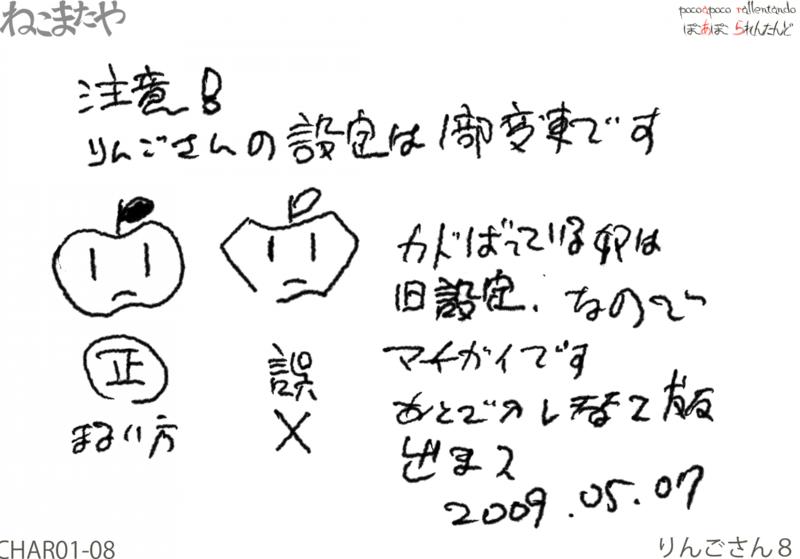 ねこまたや
pocoapoco rallentando
ぽこあぽこ られんたんど
注意!
りんごさんの設定は1部変更です
カドばっている
旧設定.なので
マチガイです
正
まるい方
誤
×
あとで
出ます
2009.05.07
CHAR01-08
りんごさん8